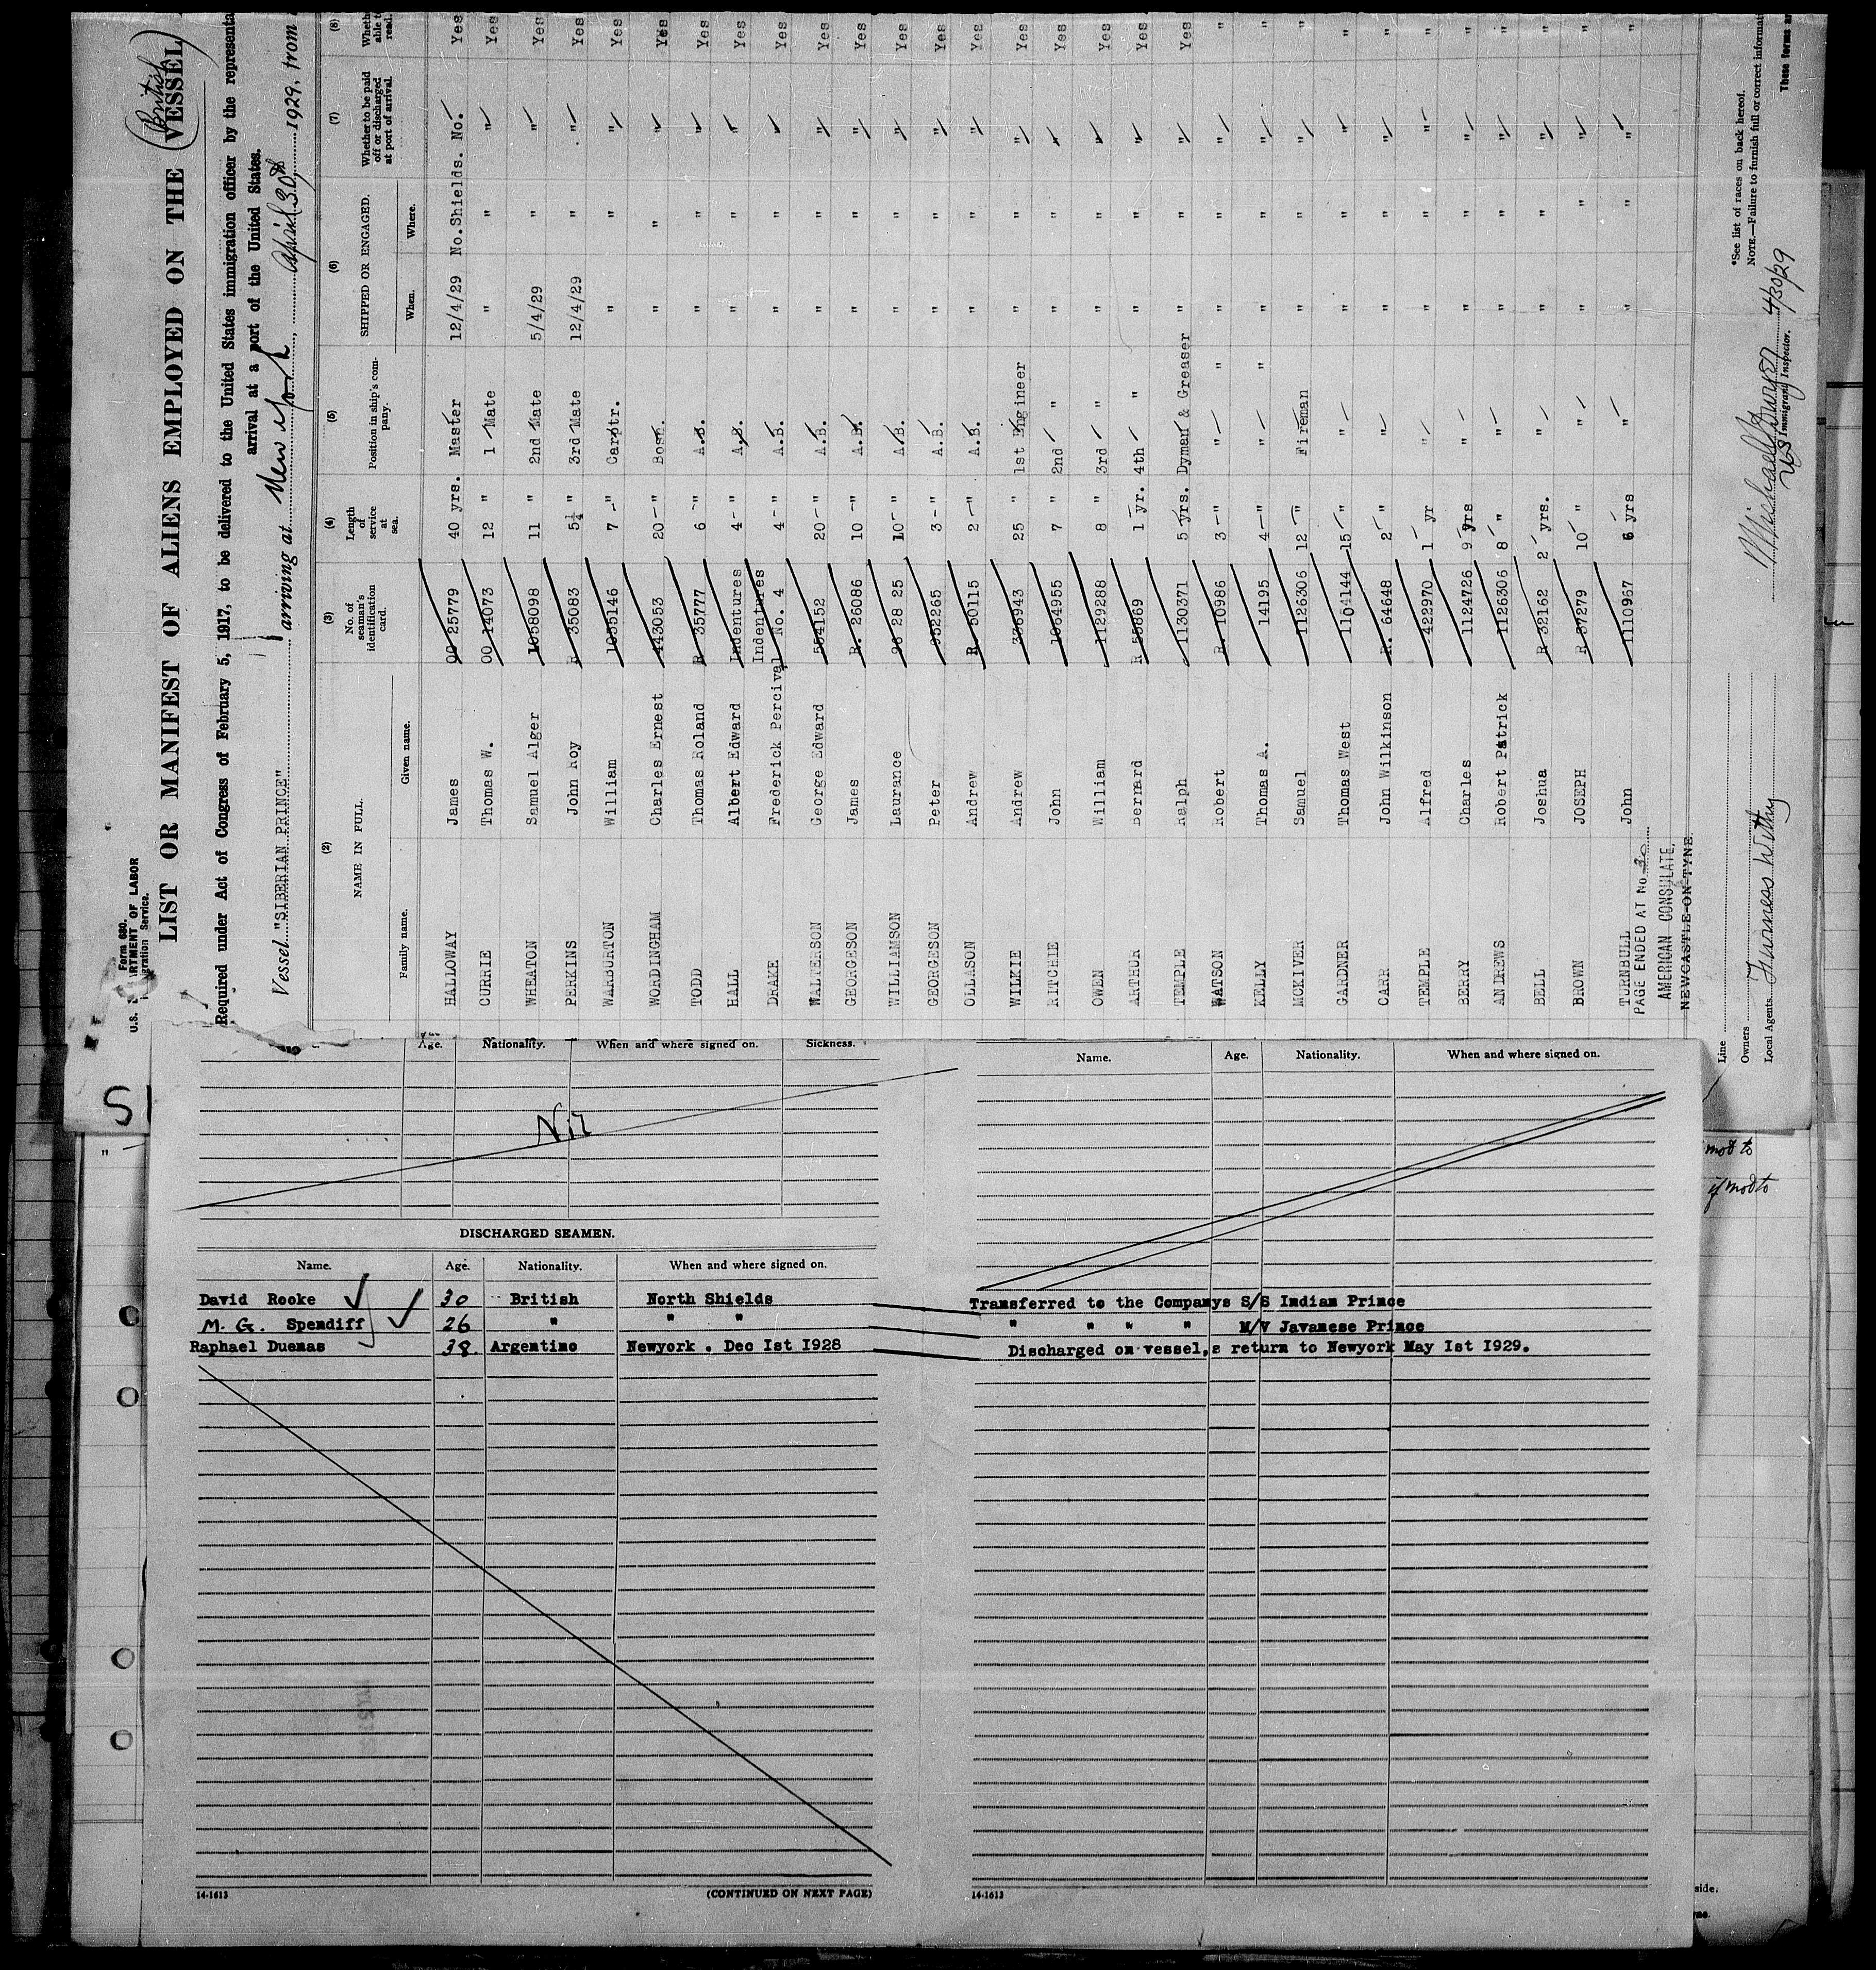 Form 680.
U.S. DEPARTMENT OF LABOR
Immigration Service.
(British)
LIST OR MANIFEST OF ALIENS EMPLOYED ON THE VESSEL
Required under Act of Congress of February 5, 1917, to be delivered to the United States immigration officer by the representa
arrival at a port of the United States.
Vessel "SIBERIAN PRINCE" arriving at New York, April 30th 1929, from
(2) (3) (4) (5) (6) (7) (8)
NAME IN FULL. No. of seaman's identification card. Length of service at sea. Position in ship's company. SHIPPED OR ENGAGED. Whether to be paid off or discharged at port of arrival. Wheth able to read.
Family name. Given name. When. Where.
HALLOWAY James 00 25779 40 yrs. Master 12/4/29 No.Shields. No. Yes
CURRIE Thomas W. 00 14073 12 " 1 Mate " " " Yes
WHEATON Samuel Alger 1058098 11 " 2nd Mate 5/4/29 " " Yes
PERKINS John Roy R 35083 5½ " 3rd Mate 12/4/29 " " Yes
WARBURTON William 1055146 7 " Carptr. " " " Yes
WORDINGHAM Charles Ernest 443053 20 " Bosn. " " " Yes
TODD Thomas Roland R 35777 6 " A.B. " " " Yes
HALL Albert Edward Indentures 4 " A.B. " " " Yes
DRAKE Frederick Percival Indentures No. 4 4 " A.B. " " " Yes
WALTERSON George Edward 554152 20 " A.B. " " " Yes
GEORGESON James R. 26086 10 " A.B. " " " Yes
WILLIAMSON Laurance 96 28 25 10 " A.B. " " " Yes
GEORGESON Peter 952265 3 " A.B. " " " Yes
OLLASON Andrew R. 50115 2 " A.B. " " " Yes
WILKIE Andrew 336943 25 " 1st Engineer " " " Yes
RITCHIE John 1064955 7 " 2nd " " " " Yes
OWEN William 1129288 8 " 3rd " " " " Yes
ARTHUR Bernard R 55869 1 yr. 4th " " " " Yes
TEMPLE Ralph 1130371 5 yrs. Dyman & Greaser " " " Yes
WATSON Robert R. 10986 3 " " " " " " "
KELLY Thomas A. 14195 4 " " " " " " "
MCKIVER Samuel 1126306 12 " Fireman " " " "
GARDNER Thomas West 1104144 15 " " " " " "
CARR John Wilkinson R. 64648 2 " " " " " "
TEMPLE Alfred 422970 1 yr " " " " "
BERRY Charles 1124726 9 yrs " " " " "
ANDREWS Robert Patrick 1126306 8 " " " " " "
BELL Joshua R 32162 2 yrs. " " " " "
BROWN JOSEPH R.37279 10 " " " " " "
TURNBULL John 1110967 6 yrs " " " " "
PAGE ENDED AT No. 30
AMERICAN CONSULATE,
NEWCASTLE-ON-TYNE.
Line
Owners
Local Agents Furness Withy
US Immigrant Inspector. 4/30/29
*See list of races on back hereof.
NOTE.—Failure to furnish full or correct informat
These forms ar
Age. Nationality. When and where signed on. Sickness.
Nil
DISCHARGED SEAMEN.
Name. Age. Nationality. When and where signed on.
David Rooke 30 British North Shields
M. G. Spendiff 26 " " "
Raphael Duenas 38. Argentino Newyork . Dec 1st 1928
14-1613 (CONTINUED ON NEXT PAGE)
Name. Age. Nationality. When and where signed on.
Transferred to the Companys S/S Indian Prince
" " " " M/V Javanese Prince
Discharged on vessel,s return to Newyork May 1st 1929.
14-1613
mod to
if mod to
side.